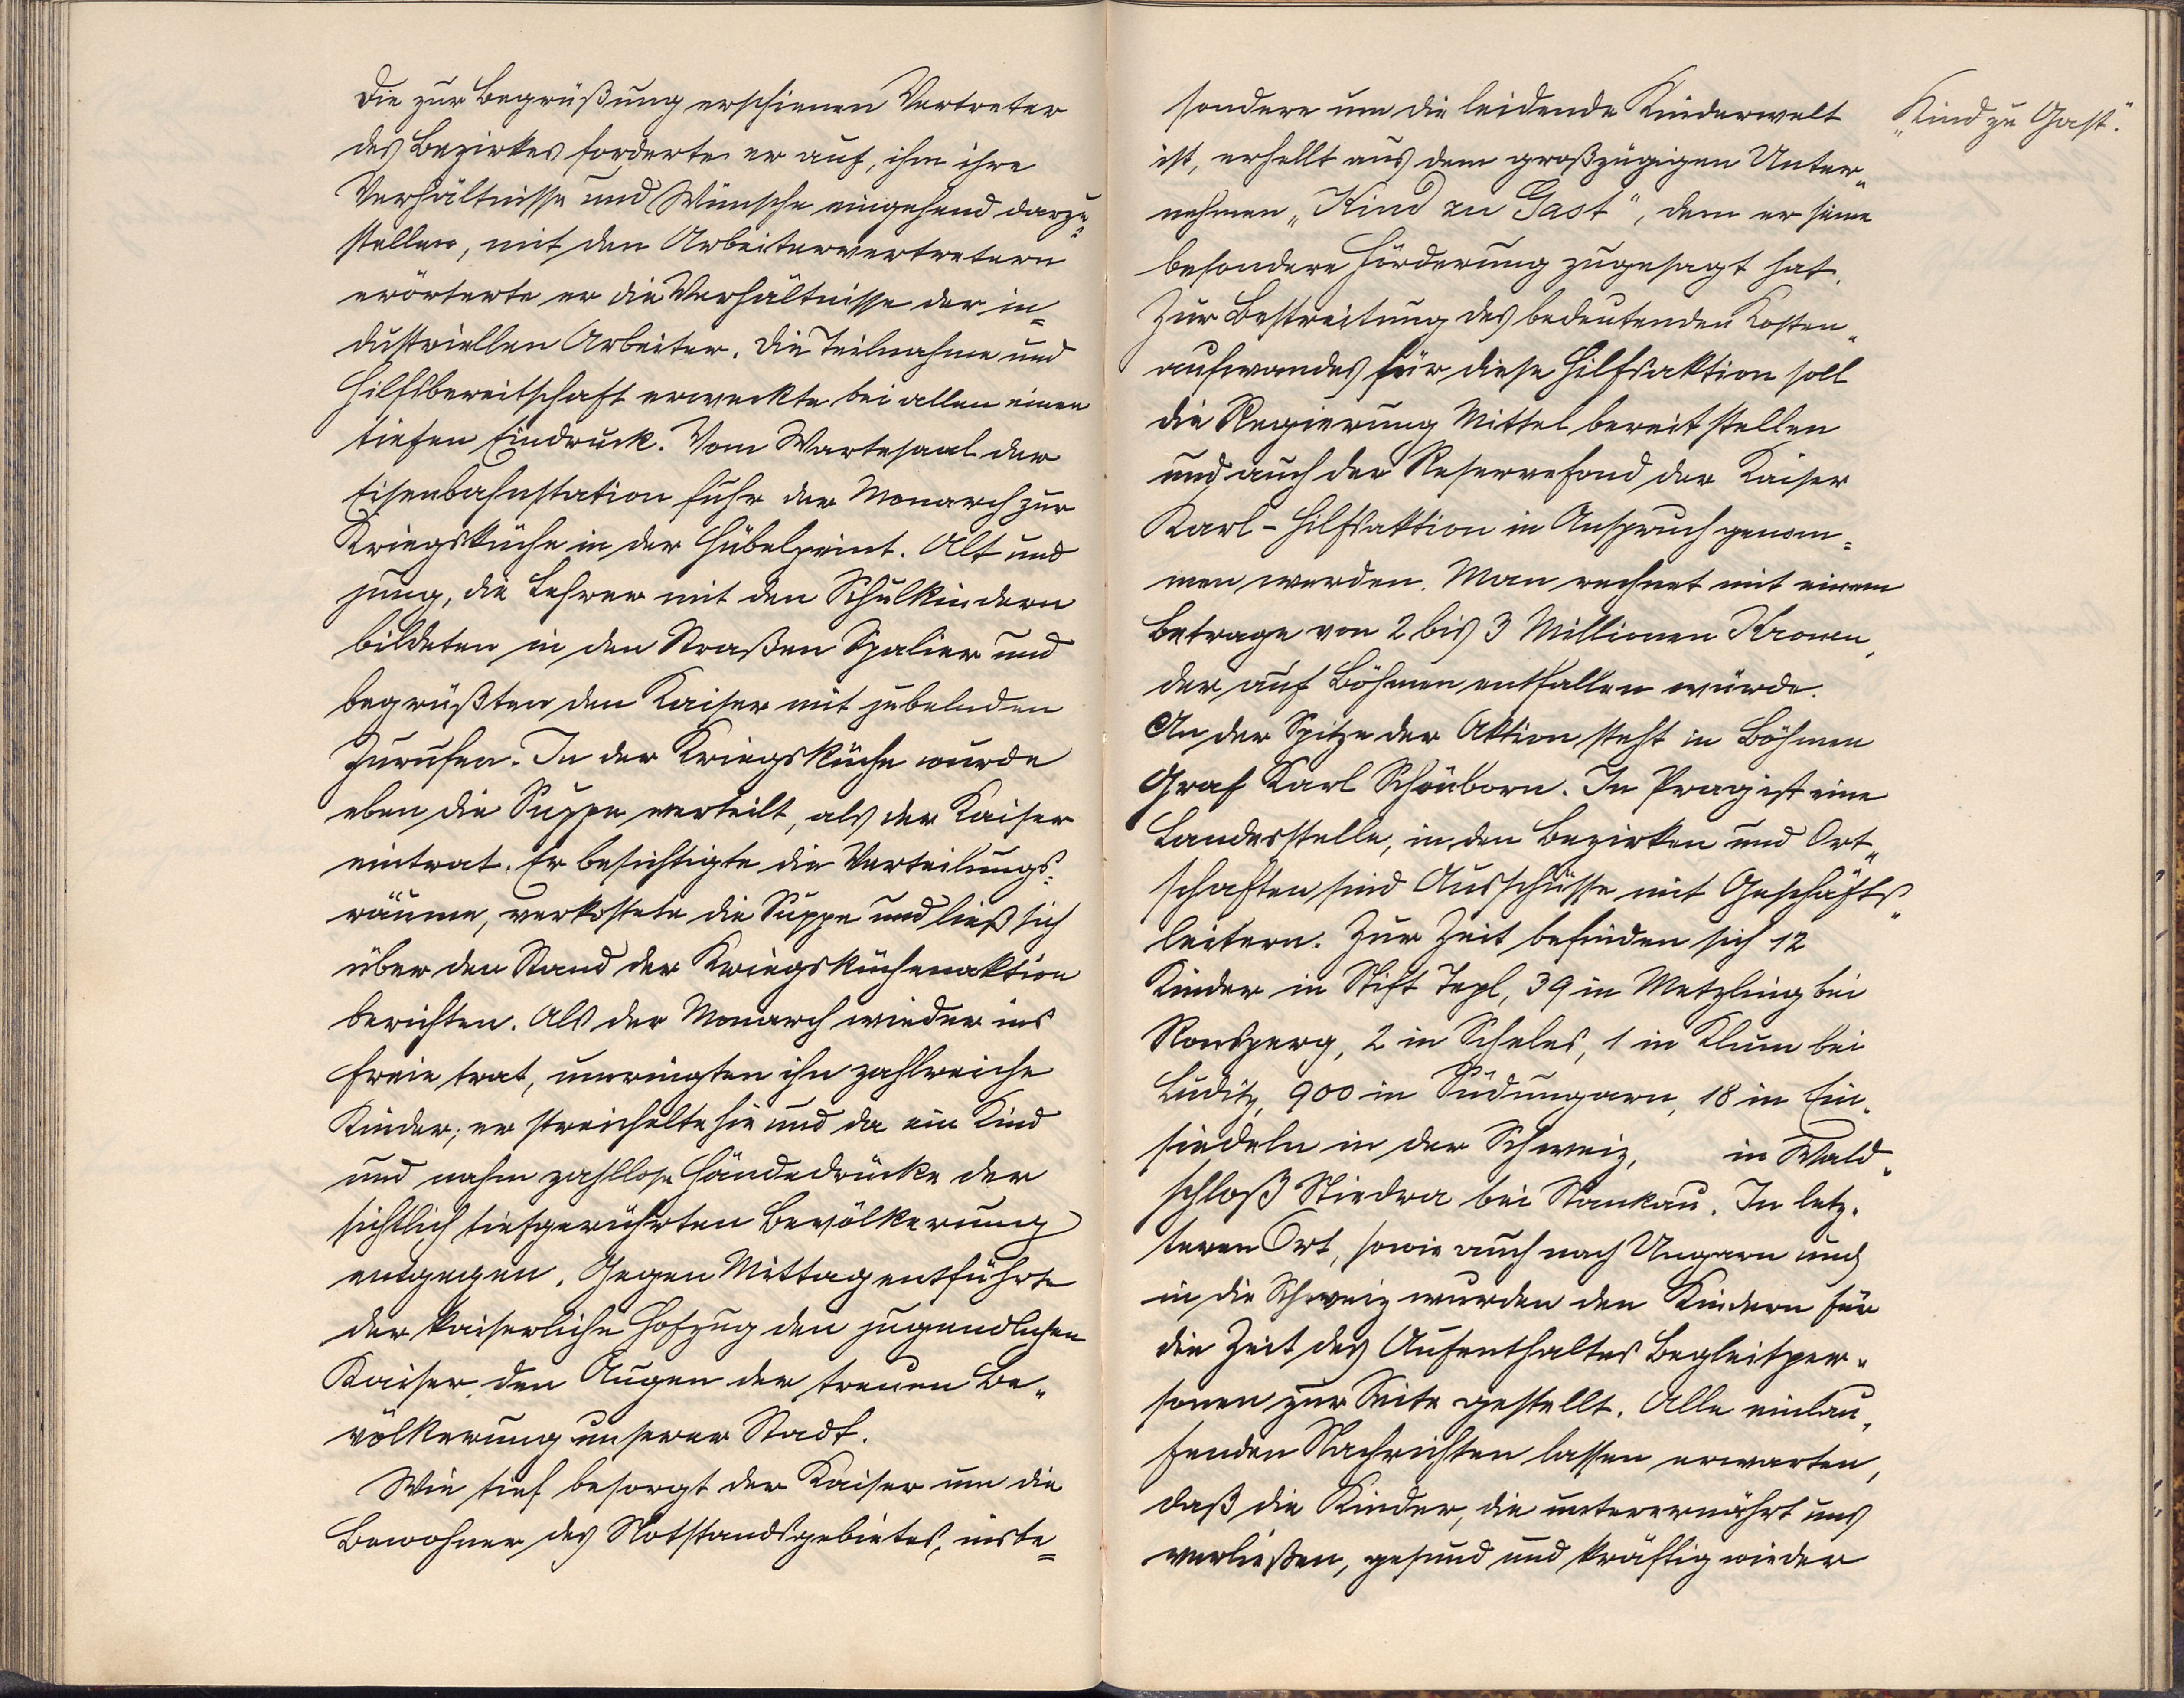 Die zur Begrüßung erschienen Vertreter
des Bezirkes forderte er auf, ihm ihre
Verhältnisse und Wünsche eingehend darzu„
stellen, mit den Arbeitervertretern
erörterte er die Verhältnisse der in=
dustriellen Arbeiter. Die Teilnahme und
Hilfsbereitschaft erweckte bei allen einen
tiefen Eindruck. Vom Wartesaal der
Eisenbahnstation fuhr der Monarch zur
Kriegsküche in der Hübelpeint. Alt und
jung, die Lehrer mit den Schulkindern
bildeten in den Straßen Spalier und
begrüßten den Kaiser mit jubelnden
Zurufen. In der Kriegsküche wurde
eben die Suppe verteilt, als der Kaiser
eintrat. Er besichtigte die Verteilungs=
räume, verkostete die Suppe und ließ sich
über den Stand der Kriegsküchenaktion
berichten. Als der Monarch wieder ins
Freie trat, umringten ihn zahlreiche
Kinder; er streichelte hie und da ein Kind
und nahm zahllose Händedrücke der
sichtlich tiefgerührten Bevölkerung
entgegen. Gegen Mittag entführte
der kaiserliche Hofzug den jugendlichen
Kaiser den Augen der treuen Be„
völkerung unserer Stadt.
Wie tief besorgt der Kaiser um die
Bewohner des Notstandsgebietes, insbe=
sondere um die leidende Kinderwelt
„Kind zu Gast".
ist, erhellt aus dem großzügigen Unter„
nehmen „Kind zu Gast", dem er seine
besondere Förderung zugesagt hat.
Zur Bestreitung des bedeutenden Kosten„
aufwandes für diese Hilfsaktion soll
die Regierung Mittel bereitstellen
und auch der Reservefond der Kaiser
Karl-Hilfsaktion in Anspruch genom=
men werden. Man rechnet mit einem
Betrage von 2 bis 3 Millionen Kronen,
der auf Böhmen entfallen würde.
An der Spitze der Aktion steht in Böhmen
Graf Karl Schönborn. In Prag ist eine
Landesstelle, in den Bezirken und Ort„
schaften sind Ausschüsse mit Geschäfts„
leitern. Zur Zeit befinden sich 12
Kinder in Stift Tepl, 39 in Metzling bei
Ronsperg, 2 in Scheles, 1 in Klum bei
Luditz, 900 in Südungarn, 18 in Ein„
siedeln in der Schweiz, in Wald„
schloß Stiedra bei Stankau. In letz„
teren Ort, sowie auch nach Ungarn und
in die Schweiz wurden den Kindern für
die Zeit des Aufenthaltes Begleitper„
sonen zur Seite gestellt. Alle einlau„
fenden Nachrichten lassen erwarten,
daß die Kinder, die unterernährt uns
verließen, gesund und kräftig wieder